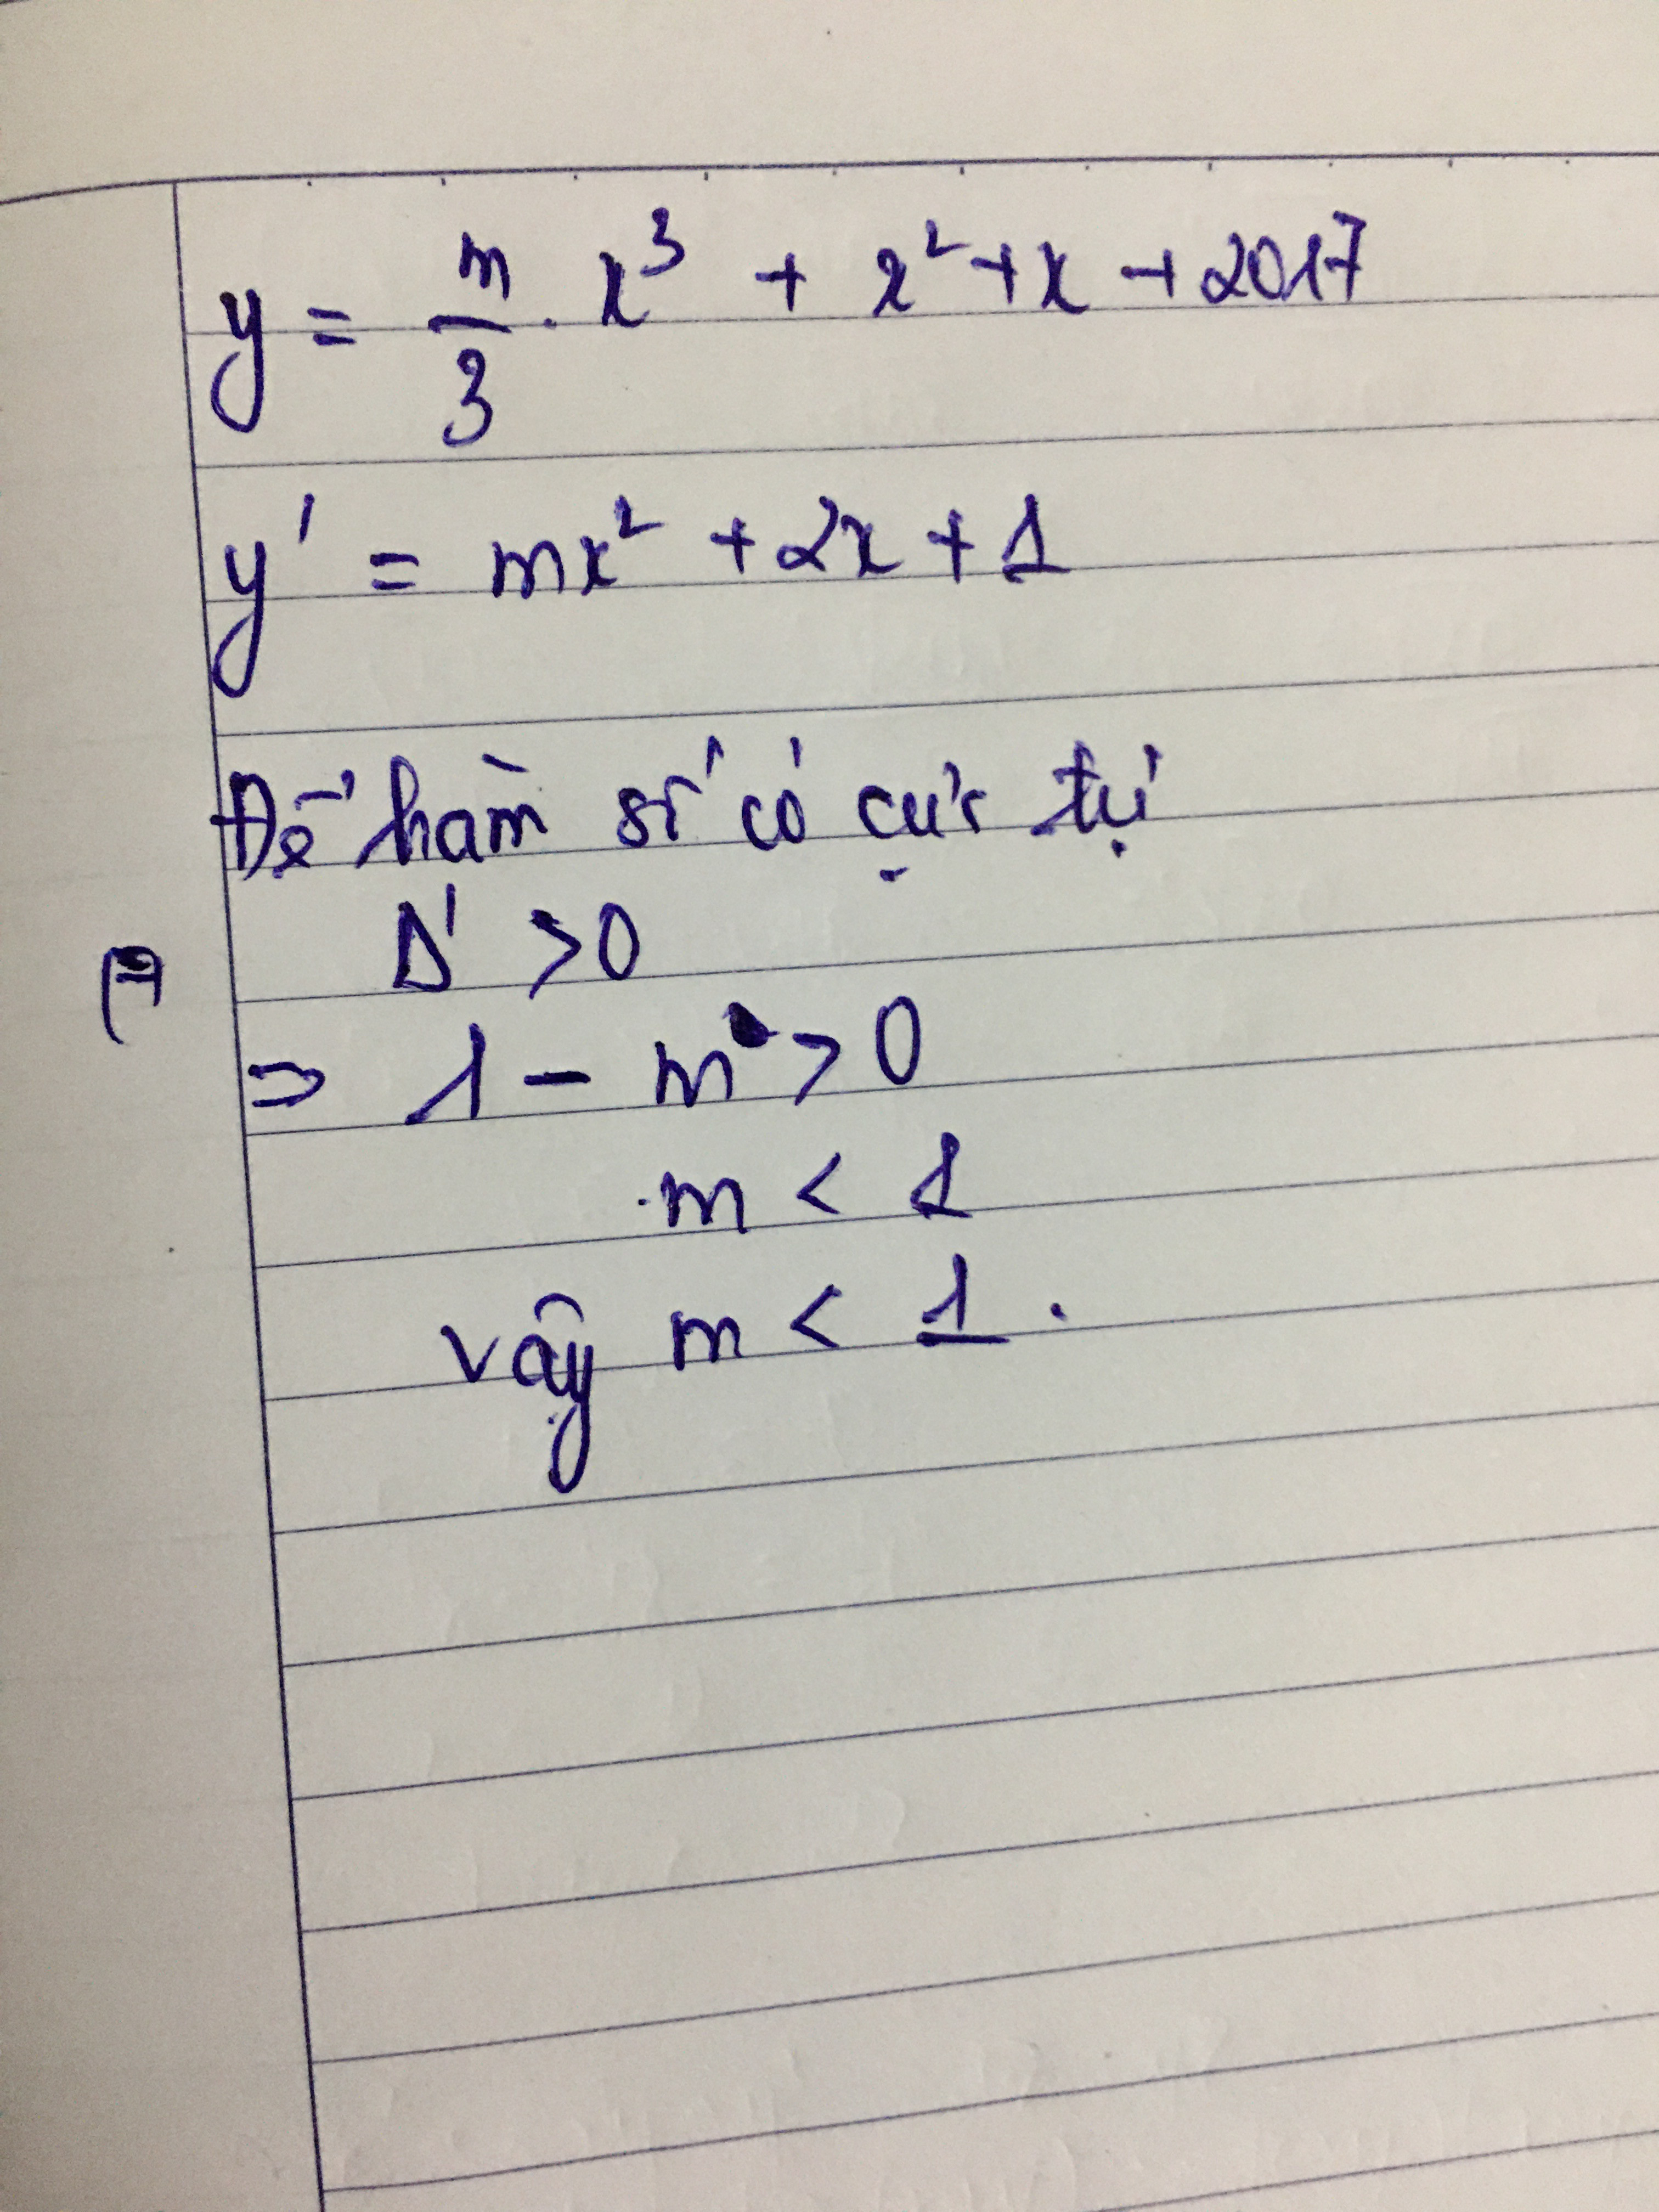 y = m/3 . x³ + x² + x + 2017
y' = mx² + 2x + 1
Để hàm số có cực trị
Δ' > 0
=> 1 - m > 0
m < 1
Vậy m < 1.